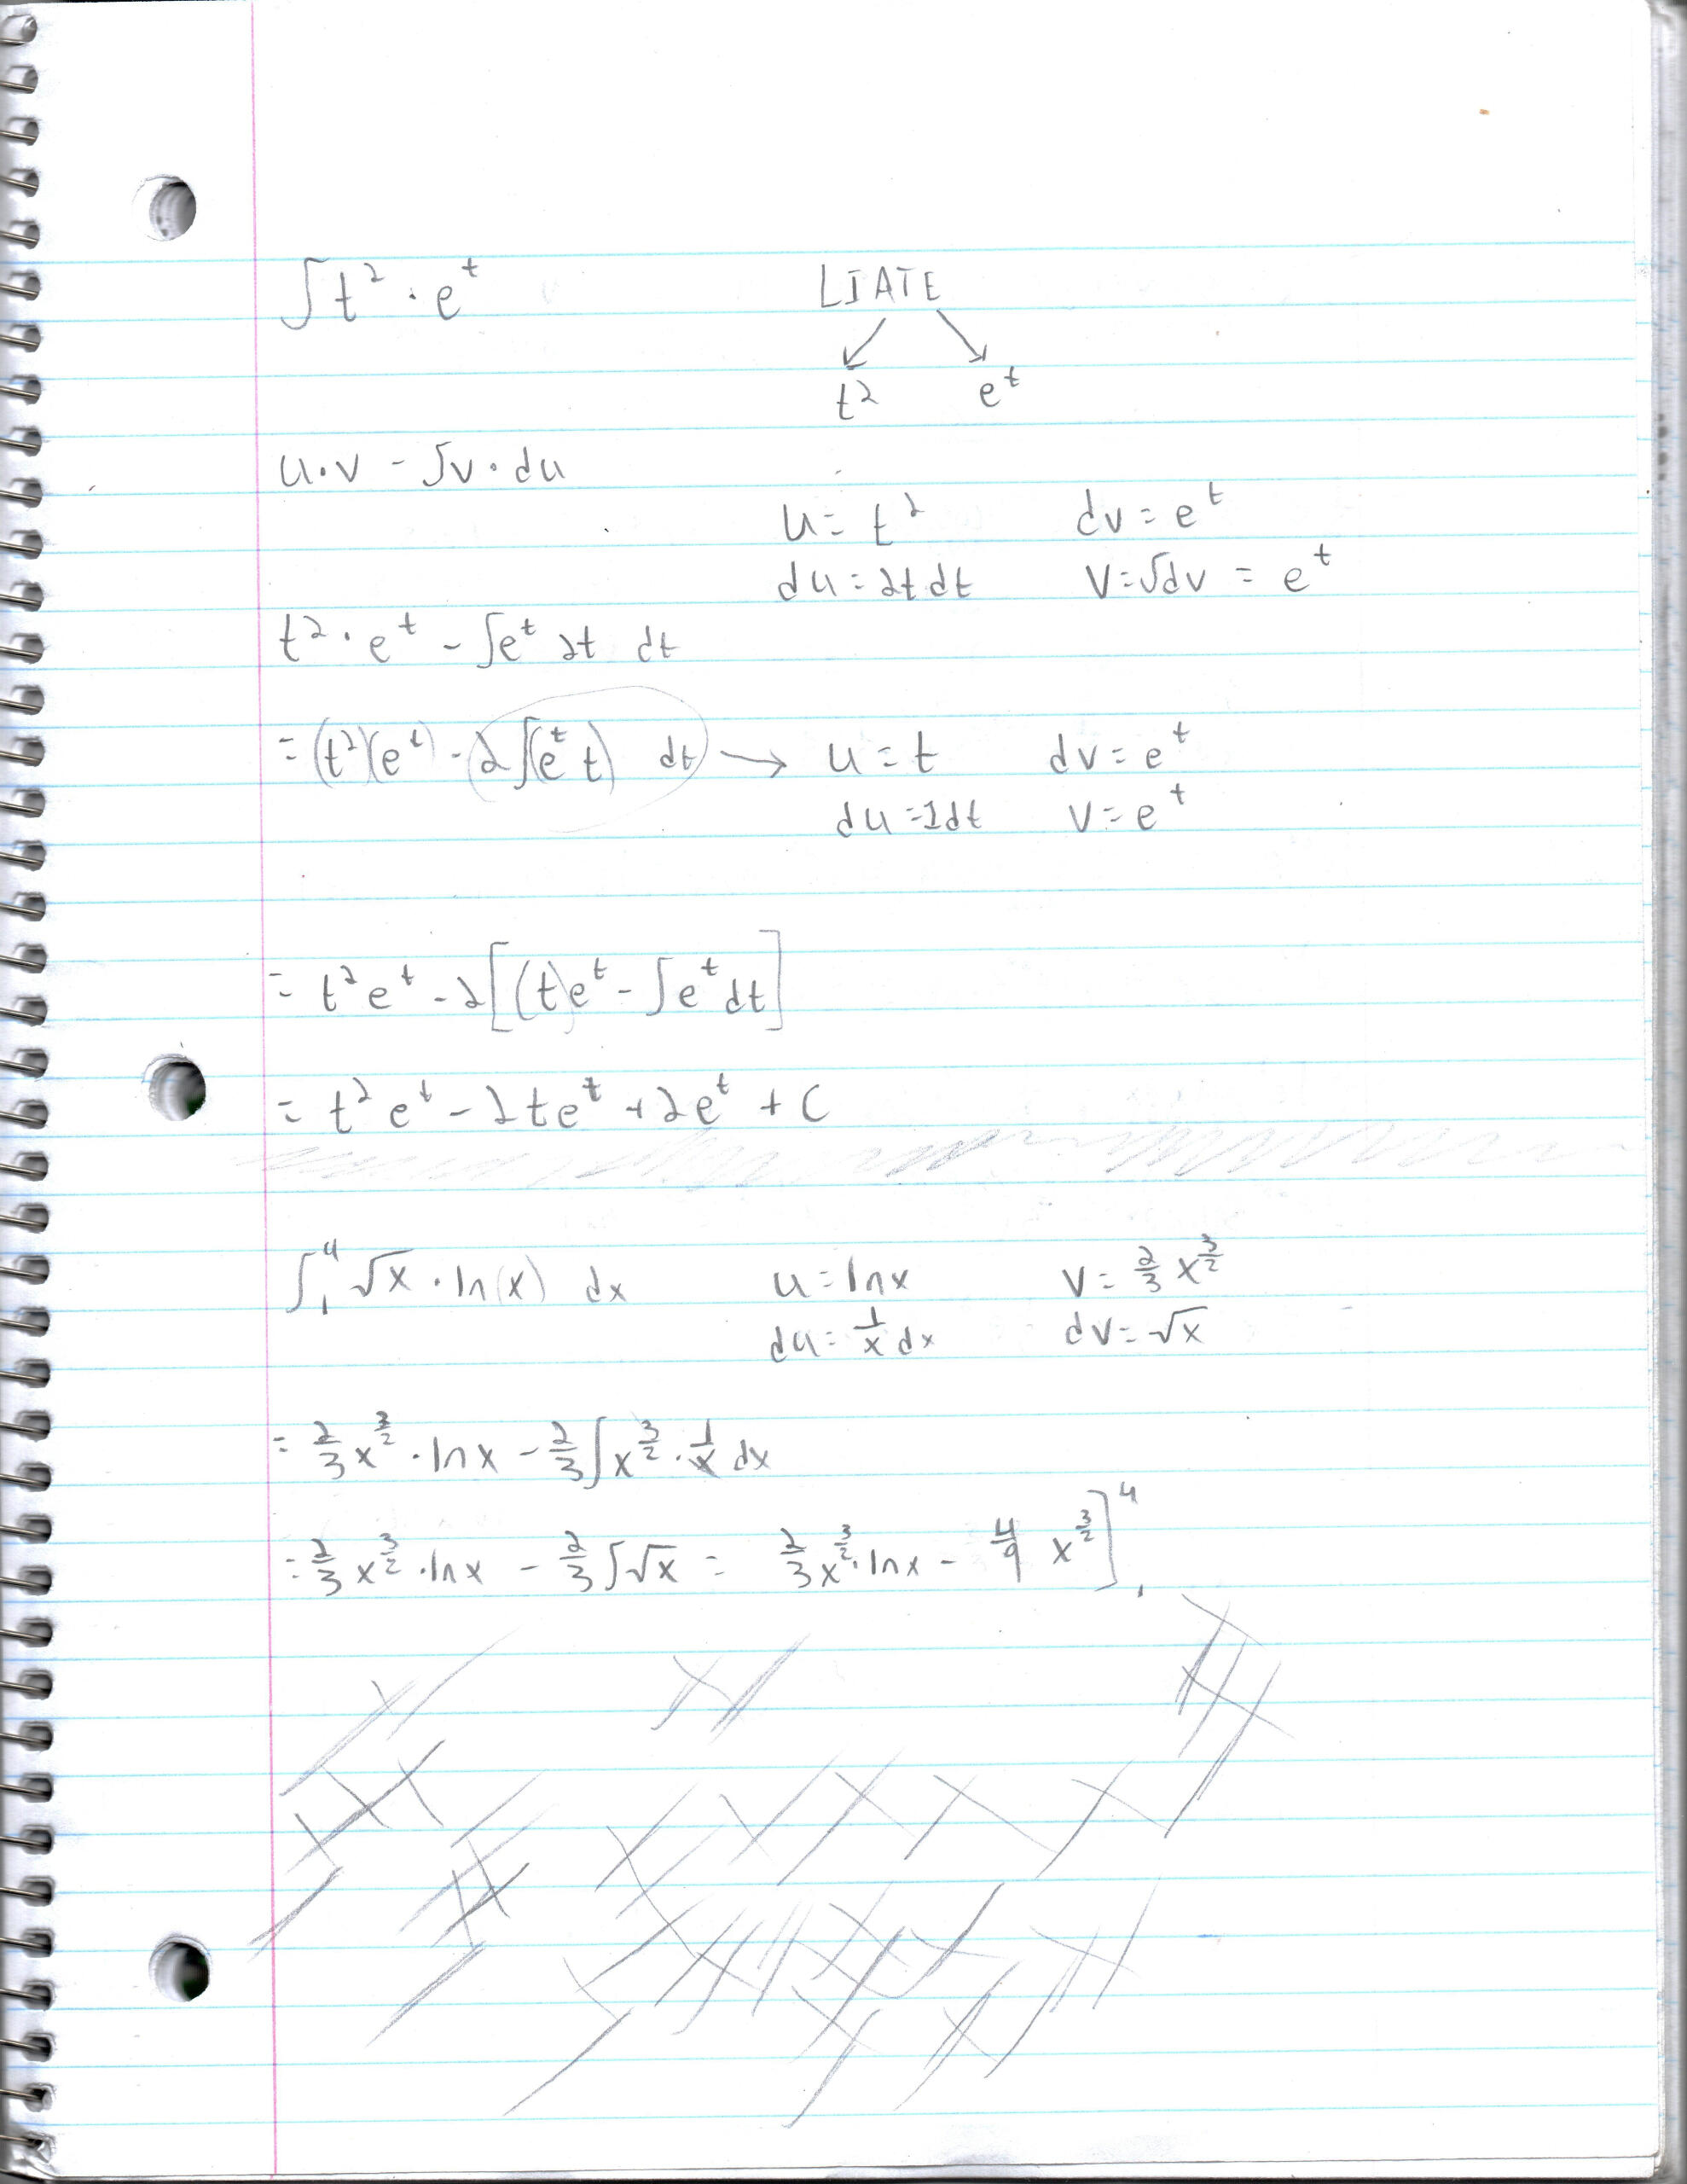 ∫t² · e^t    LIATE
t²    e^t
u·v - ∫v·du
u = t²    dv = e^t
du = 2t dt    v = ∫dv = e^t
t² · e^t - ∫e^t 2t dt
= (t²)(e^t) - 2∫(e^t t) dt → u = t    dv = e^t
du = 1dt    v = e^t
= t² e^t - 2[(t)e^t - ∫e^t dt]
= t² e^t - 2te^t + 2e^t + C
∫₁⁴ √x · ln(x) dx    u = lnx    v = 2/3 x^(3/2)
du = 1/x dx    dv = √x
= 2/3 x^(3/2) · lnx - 2/3 ∫x^(3/2) · 1/x dx
= 2/3 x^(3/2) · lnx - 2/3 ∫√x = 2/3 x^(3/2) · lnx - 4/9 x^(3/2)]₁⁴